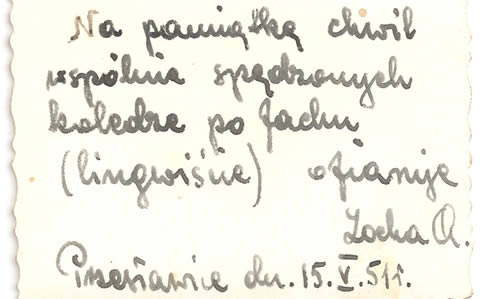 Na pamiątkę chwil
wspólnie spędzonych
koledze po fachu
(lingwiście) ofiaruje
Zocha A.
dn. 15.V.51r.